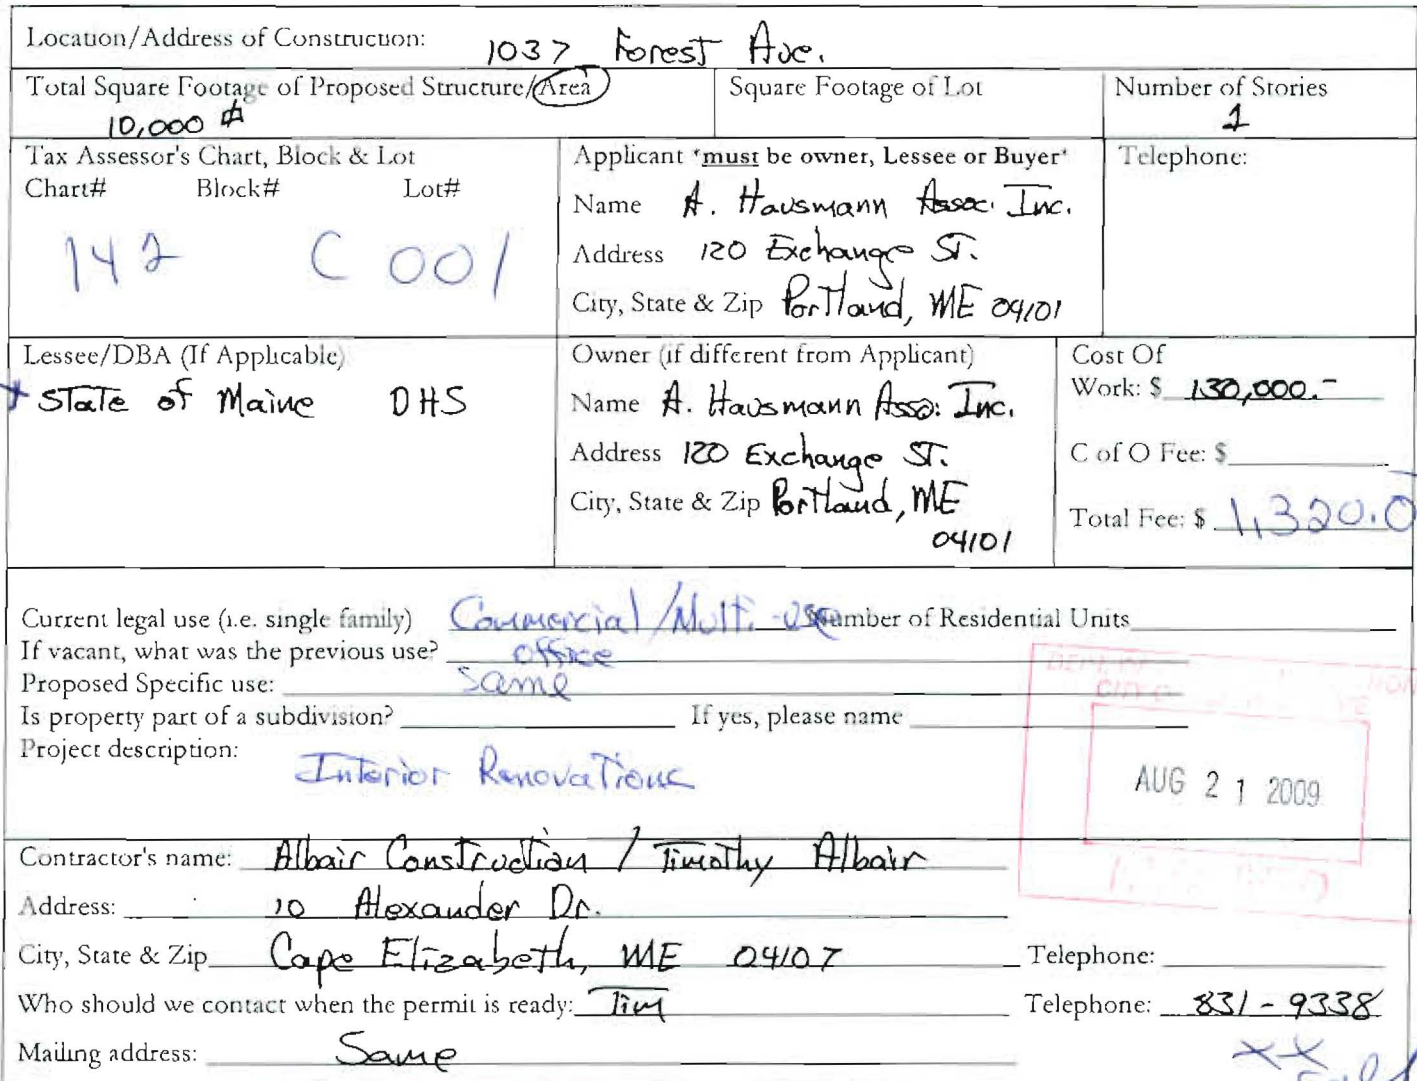 Location/Address of Construction: 1037 Forest Ave.
Total Square Footage of Proposed Structure/Area
10,000
Square Footage of Lot
Number of Stories
1
Tax Assessor's Chart, Block & Lot
Chart# Block# Lot#
142 C 001
Applicant *must be owner, Lessee or Buyer*
Name A. Hausmann Assoc. Inc.
Address 120 Exchange St.
City, State & Zip Portland, ME 04101
Telephone:
Lessee/DBA (If Applicable)
State of Maine DHS
Owner (if different from Applicant)
Name A. Hausmann Asso. Inc.
Address 120 Exchange St.
City, State & Zip Portland, ME
04101
Cost Of
Work: $ 130,000.-
C of O Fee: $
Total Fee: $ 1,320.0
Current legal use (i.e. single family) Commercial/Multi-use Number of Residential Units
If vacant, what was the previous use? office
Proposed Specific use: Same
Is property part of a subdivision? If yes, please name
Project description:
Interior Renovations
AUG 21 2009
Contractor's name: Albair Construction / Timothy Albair
Address: 10 Alexander Dr.
City, State & Zip Cape Elizabeth, ME 04107 Telephone:
Who should we contact when the permit is ready: Tim Telephone: 831-9338
Mailing address: Same